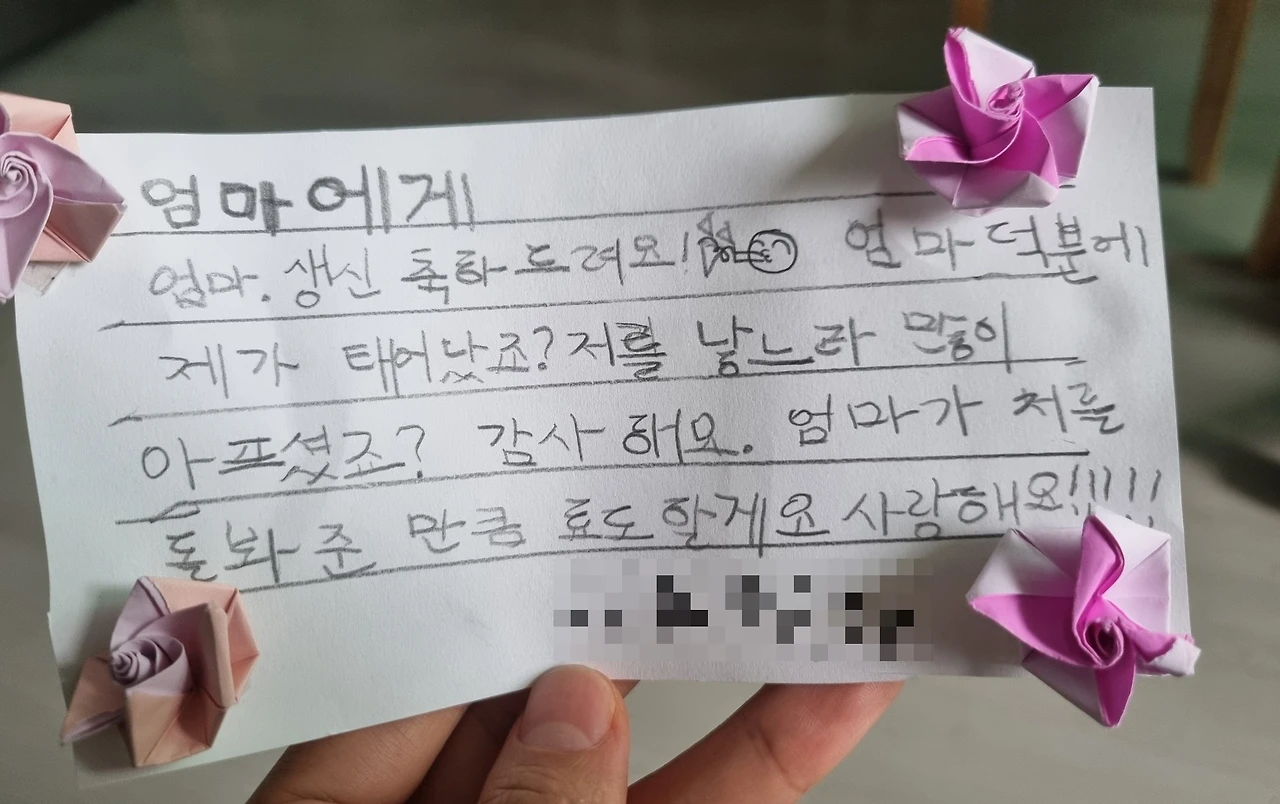 엄마에게
엄마. 생신 축하 드려요! 엄마 덕분에
제가 태어났죠? 저를 낳느라 많이
아프셨죠? 감사해요. 엄마가 저를
돌봐 준 만큼 효도 할게요 사랑해요!!!!!